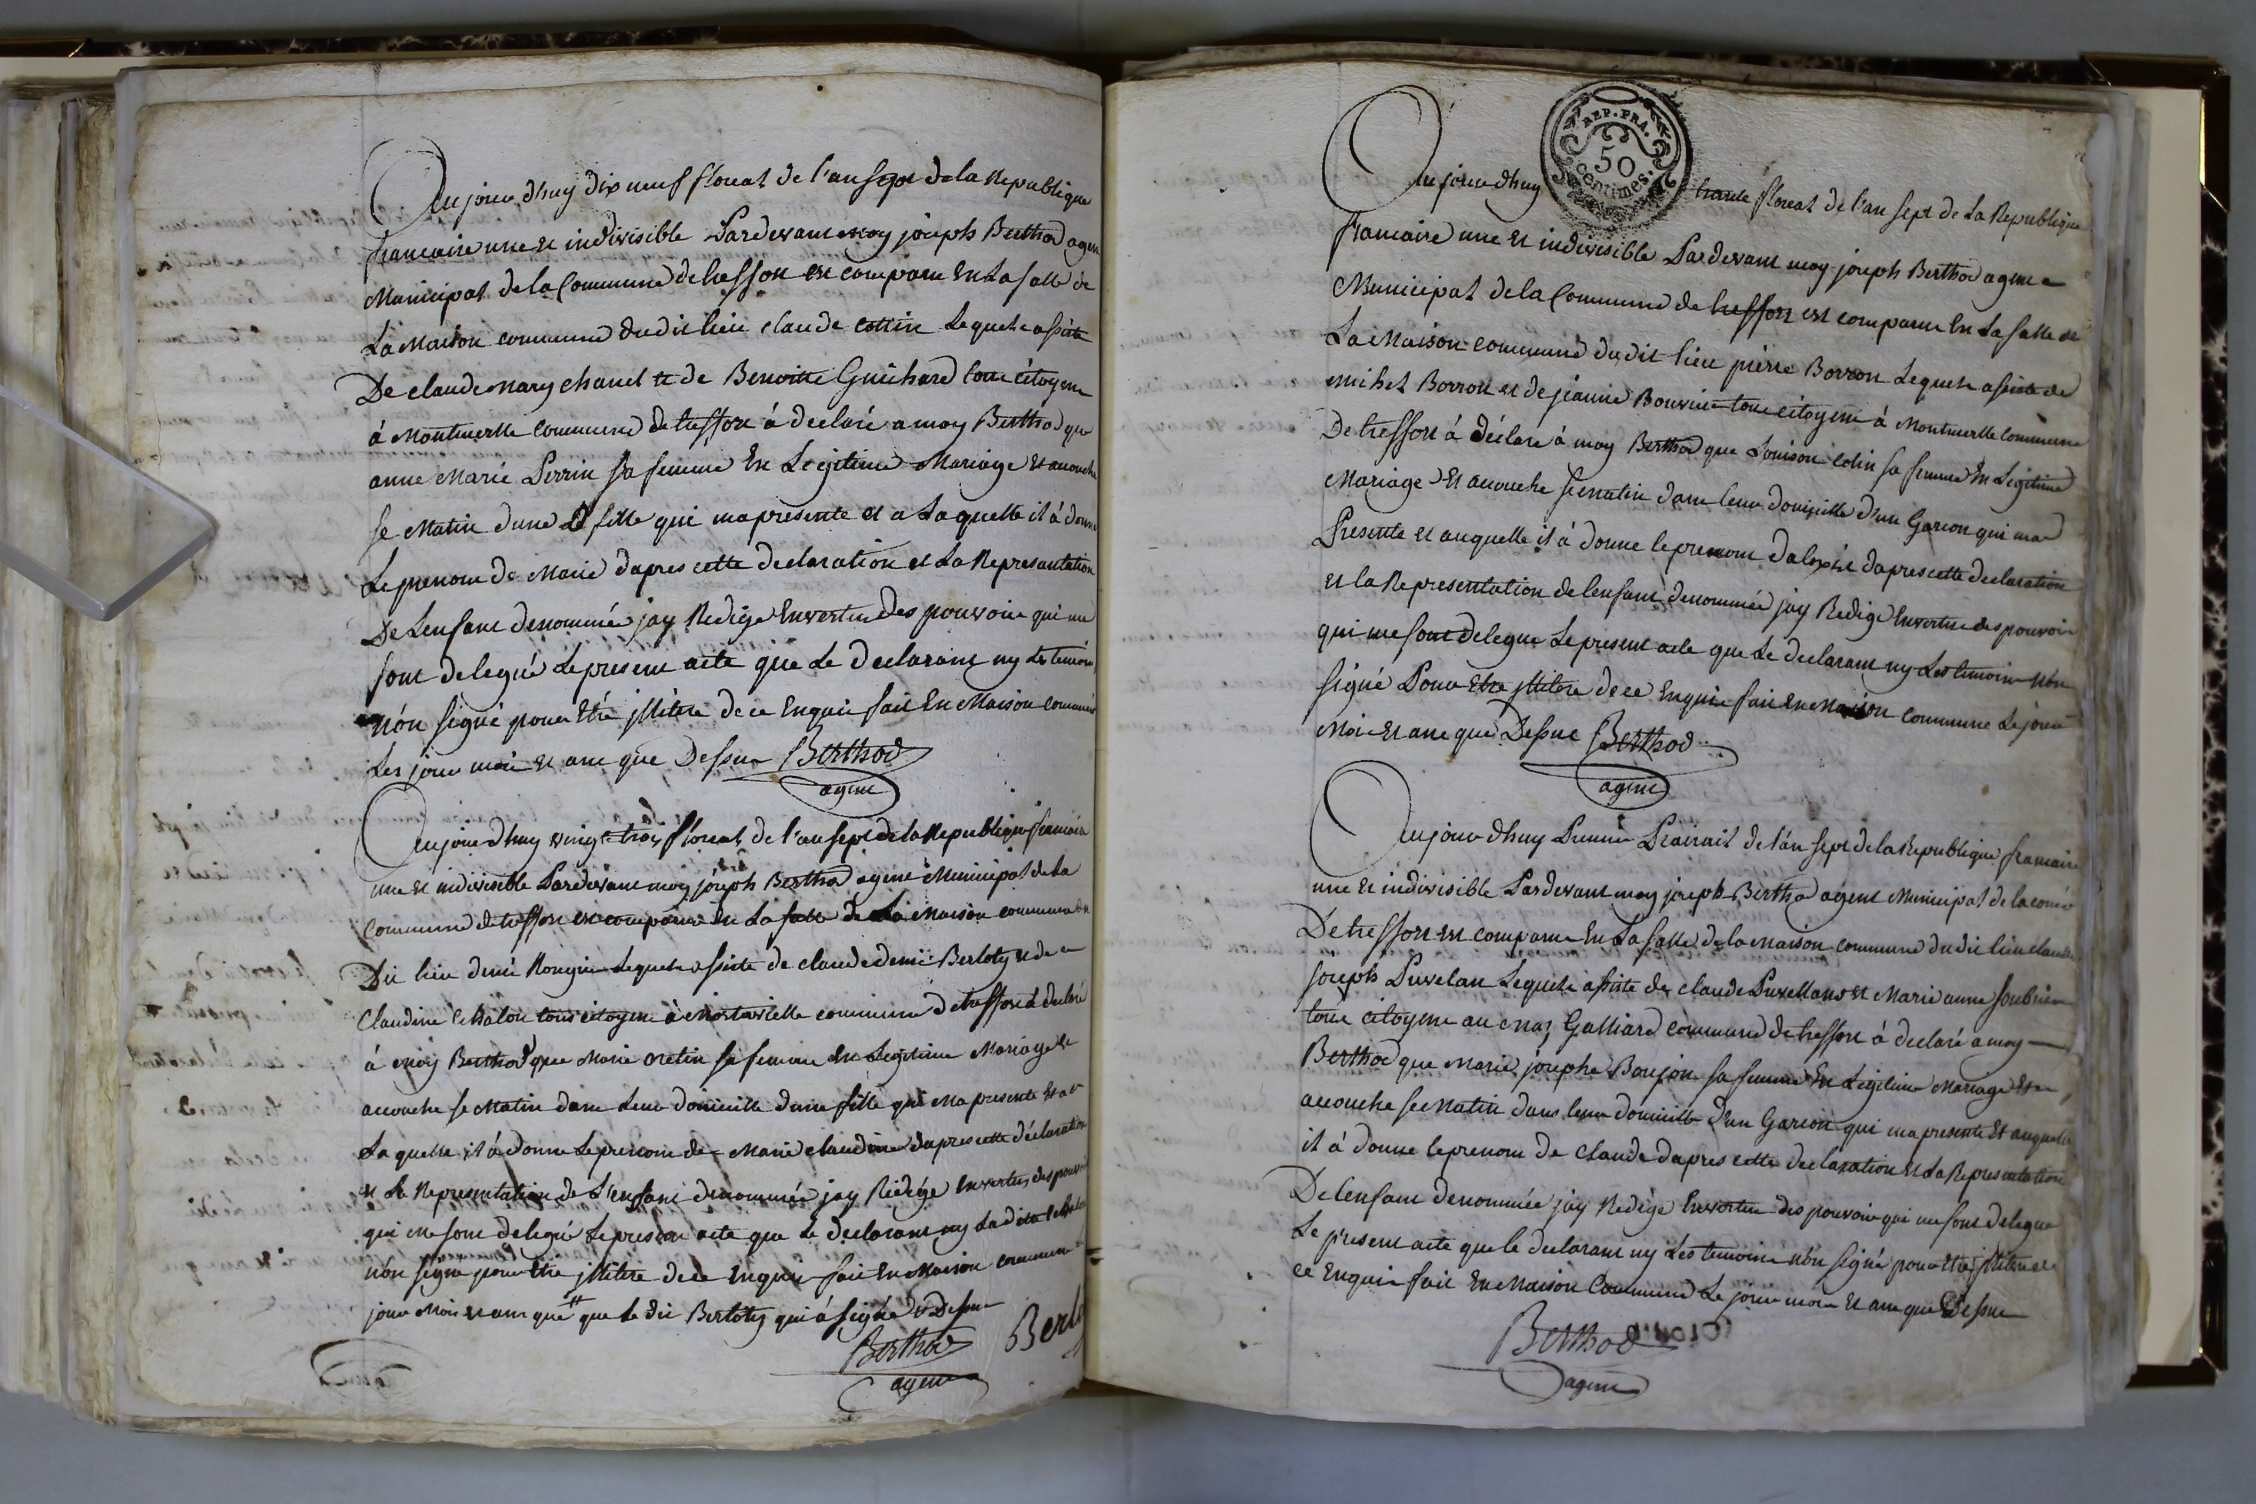 Aujourdhuy dix neuf floreal de l'an sept de la Republique
francaise une et indivisible Pardevant moy joseph Berthod agen
Municipal de la Commune de tresfort est comparu En La salle de
La Maison commune dudit lieu claude cottin Lequel assisté
De claude mary chanel et de Benoitte Guichard tous citoyens
à Montmerle commune de tresfort à declaré a moy Berthod que
anne Marie Perrin sa femme En Legitime Mariage Et accouche
se Matin dune fille qui ma presente et a Laquelle il à donne
Le prenom de Marie dapres cette declaration et La Representation
De Lenfant denommée jay Redigé En vertu Des pouvoirs qui me
sont delegué Le present acte que Le declarant ny Les temoins
nón signé pour Etre jllitere de ce Enquis fait En Maison commune
Les jour mois et ans que Dessus Berthod
agent
Aujourdhuy vingt trois floreal de l'an sept de la Republique francaise
une et indivisible Pardevant moy joseph Berthod agent Municipal de La
Commune de tresfort est comparu En La salle de La Maison commune du
Dit lieu denis Rougin Lequel assisté de claude denis Bertoty et de
Claudine Chalon tous citoyens à Montmerle commune de tresfort à declaré
à moy Berthod que Marie sa femme En Legitime Mariage Et
accouche se Matin dans Leur domicille dune fille qui Ma presente Et a
Laquelle il à donne Le prenom de Marie claudine dapres cette déclaration
et La Representation de L'enfant denommée jay Redigé En vertu des pouvoirs
qui me sont delegué Le present acte que Le declarant ny La dite Chalon
nón signé pour Etre jllitere de ce Enquis fait En Maison commune
jour Mois et ans que # que Le dit Bertoty qui à signé Dessus
Berthod Bert
agent
Aujourdhuy trante floreal de l'an sept de La Republique
REP. FRA.
50
centimes.
francaise une et indivisible Pardevant moy joseph Berthod agent
Municipal de la Commune de tresfort est comparu En La salle de
La Maison commune dudit lieu pierre Borron Lequel assisté de
michel Borron et de jeanne Bouvier tous citoyens à Montmerle commune
De tresfort à déclaré à moy Berthod que Louison colin sa femme En Legitime
Mariage Et accouche se matin dans leur domicille d'un Garcon qui ma
Presente et auquelle il à donne le prenom dalexis dapres cette declaration
et la Representation de lenfant denommée jay Redigé En vertu des pouvoir
qui me sont delegue Le present acte que Le declarant ny Les temoins nón
signé Pour Etre jllitere de ce Enquis fait En Maison commune Le jour
Mois Et ans que Dessus Berthod
agent
Aujourdhuy Premier Prairail de l'an sept de la Republique francaise
une et indivisible Pardevant moy joseph Berthod agent Municipal de la comne
De tresfort est comparu En La salle de la Maison commune du dit lieu claude
joseph Puvelan Lequel assisté de claude Puvelland et Marie anne soubrier
tous citoyens au Galliard commune de tresfort à declaré a moy
Berthod que Marie josephe Boujon sa femme En Legitime Mariage Et
accouche se Matin dans leur domicille d'un Garcon qui ma presente Et auquelle
il à donne le prenom de Claude dapres cette declaration et La Representation
De lenfant denommée jay Redigé En vertu des pouvoirs qui me sont delegue
Le present acte que le declarant ny Les temoins nón signé pour Etre jllitere de
ce Enquis fait En Maison Commune Le jour mois Et ans que Dessus
Berthod
agent